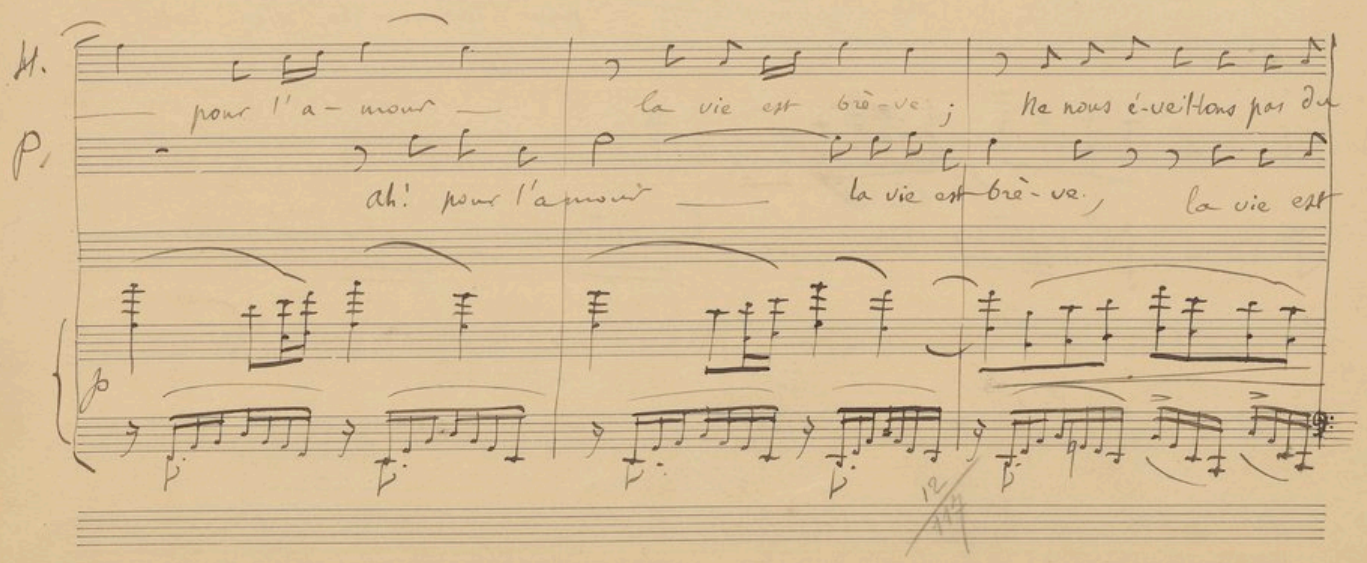 H. pour l'a-mour — la vie est brè-ve ; Ne nous é-veillons pas du
P. ah! pour l'amour — la vie est brè-ve, la vie est
p
12
117